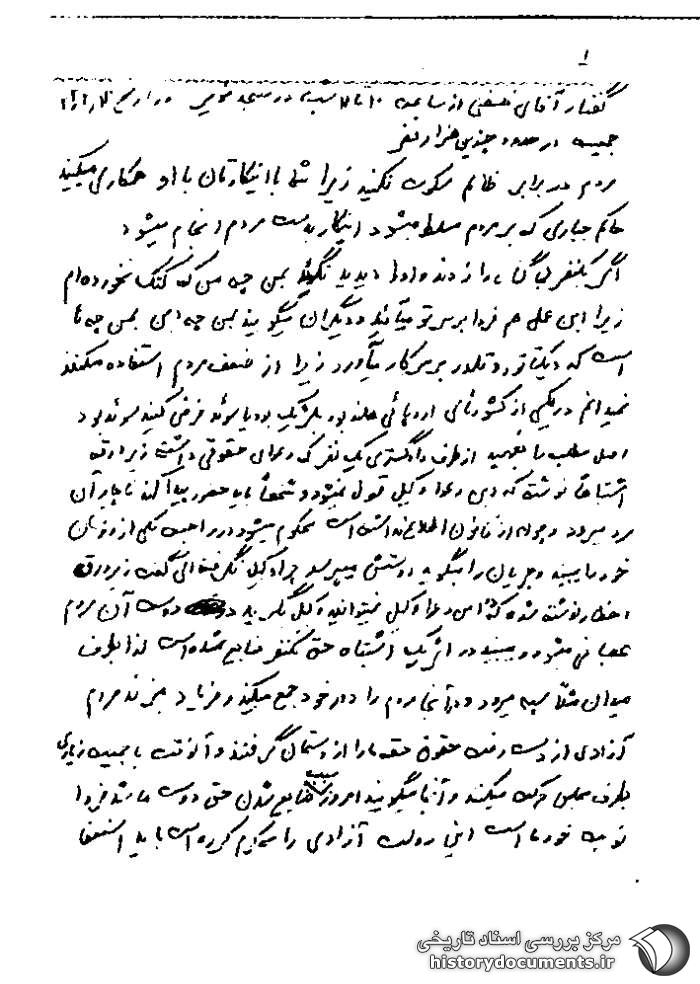 ۱
گفتار آقای فلسفی از ساعت ۱۰ تا ۱۲ شب در مسجد در تاریخ
جمعیت در حدود چندین هزار نفر
مردم در برابر ظالم سکوت نکنید زیرا شما با اینکارتان با او همکاری میکنید
حاکم جباری که بر مردم مسلط میشود اینکار بدست مردم انجام میشود
اگر یکنفر بی گناه را زدند و او را دیدید نگوئید بمن چه من که کتک نخورده‌ام
زیرا این عمل هم فردا بر سر تو میآید و دیگران میگویند بمن چه این بمن چه ما
است که دیکتاتور و قلدر بر سر کار میآورد زیرا از ضعف مردم استفاده میکنند
نمیدانم در یکی از کشورهای اروپائی هلند بود بلژیک بود یا سوئد فرض کنید سوئد بود
اصل مطلب را بفهمید از طرف دادگستری یک نفر که دعوای حقوقی داشت زیر ورقه
اشتباهاً نوشته که در این دعوا وکیل قبول نمیشود و شخصاً باید حضور پیدا کند ناچار آن
مرد میرود و چون از قانون اطلاع نداشته است محکوم میشود در مراجعت یکی از دوستان
خود را میبیند و جریان را میگوید دوستش میپرسد چرا وکیل نگرفته‌ای گفت زیر ورقه
اخطار نوشته شده که در این دعوا وکیل نمیتوانید وکیل بگیرید دوست آن مردم
عصبانی میشود و میبیند در اثر یک اشتباه حق یکنفر ضایع شده است لذا بطرف
میدان مثلاً سپه میرود و در آنجا مردم را دور خود جمع میکند و فریاد میزند مردم
آزادی از دست رفت حقوق حقه ما را از دستمان گرفتند و آنوقت با جمعیت زیادی
بطرف مجلس حرکت میکنند و آنجا میگویند امروز سبب ضایع شدن حق دوست ما شد فردا
نوبت خود ما است این دولت آزادی را محکوم کرده است باید استعفا
مرکز بررسی اسناد تاریخی
historydocuments.ir